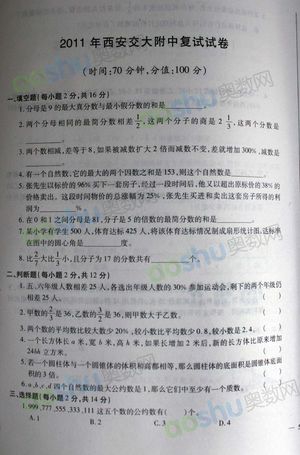 2011 年西安交大附中复试试卷
(时间:70 分钟,分值:100 分)
一、填空题(每小题 2 分,共 16 分)
1. 分母是 9 的最大真分数与最小假分数的和是
2. 两个分母相同的最简分数相差 1/2,这两个分数的商是 2 1/3,这两个分数是
3. 两个数相减,差等于 8,如果被减数扩大 2 倍而减数不变,差就增加 300%,减数是
4. 有一个自然数,它的最大的两个因数之和是 153,则这个自然数是
5. 张先生以标价的 96% 买下一套房子,经过一段时间后,他又以超出原标价的 38% 的
价格卖出。这段时间物价的总涨幅为 25%,张先生买进和卖出这套房子所得的利
润为 %。
6. 在 0 和 1 之间分母是 81,分子是 5 的倍数的最简分数的和是
7. 某小学有学生 500 人,体育达标 425 人,将该体育达标情况制成扇形统计图,达标率
在图中的圆心角是 度。
8. 比 大比 小,且分子为 17 的分数共有 个。
二、判断题(每小题 2 分,共 12 分)
1. 五、六年级人数相差 25 人,各选出年级人数的 30% 参加运动会,剩下的两个年级仍
相差 25 人。 ( )
2. 甲数的 是 36,乙数的 是 36,则甲数大于乙数。 ( )
3. 两个数的平均数比较大数少 20%,较小数比平均数少 0.8,较小数是 2.4。 ( )
4. 一个长方体长 a 米,宽 b 米,高 h 米,如果长增加 2 米后,新的长方体比原来增加
24hb 立方米。 ( )
5. 若一个圆柱体与一个圆锥体的体积和高都相等,那么圆柱体的底面积是圆锥体底面
积的 3 倍。 ( )
6. a、b、c、d 四个自然数的最大公约数是 1,那么它们中至少有一个质数。 ( )
三、选择题(每小题 2 分,共 14 分)
1. 999,777,555,333,111 这五个数的公约数有( )个。
A. 1 B. 2 C. 3 D. 4
aoshu奥数网